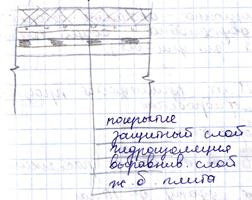 покрытие
защитный слой
гидроизоляция
выравнив. слой
ж. б. плита